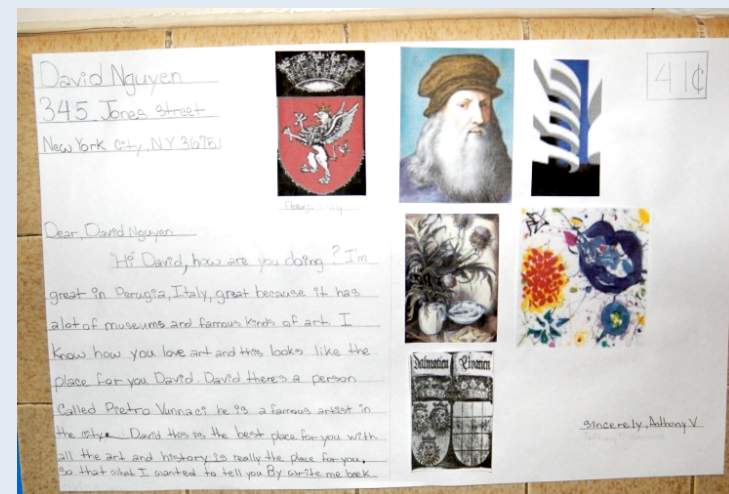 David Nguyen
345 Jones Street
New York City, NY 36751
41¢
Dear, David Nguyen
Hi David, how are you doing? I'm
great in Perugia, Italy, great because it has
alot of museums and famous kinds of art. I
know how you love art and this looks like the
place for you David. David there's a person
Called Pietro Vannaci he is a famous artist in
the city. David this is the best place for you with
all the art and history is really the place for you.
So that what I wanted to tell you By write me back
Dalmatien
sincerely, Anthony V